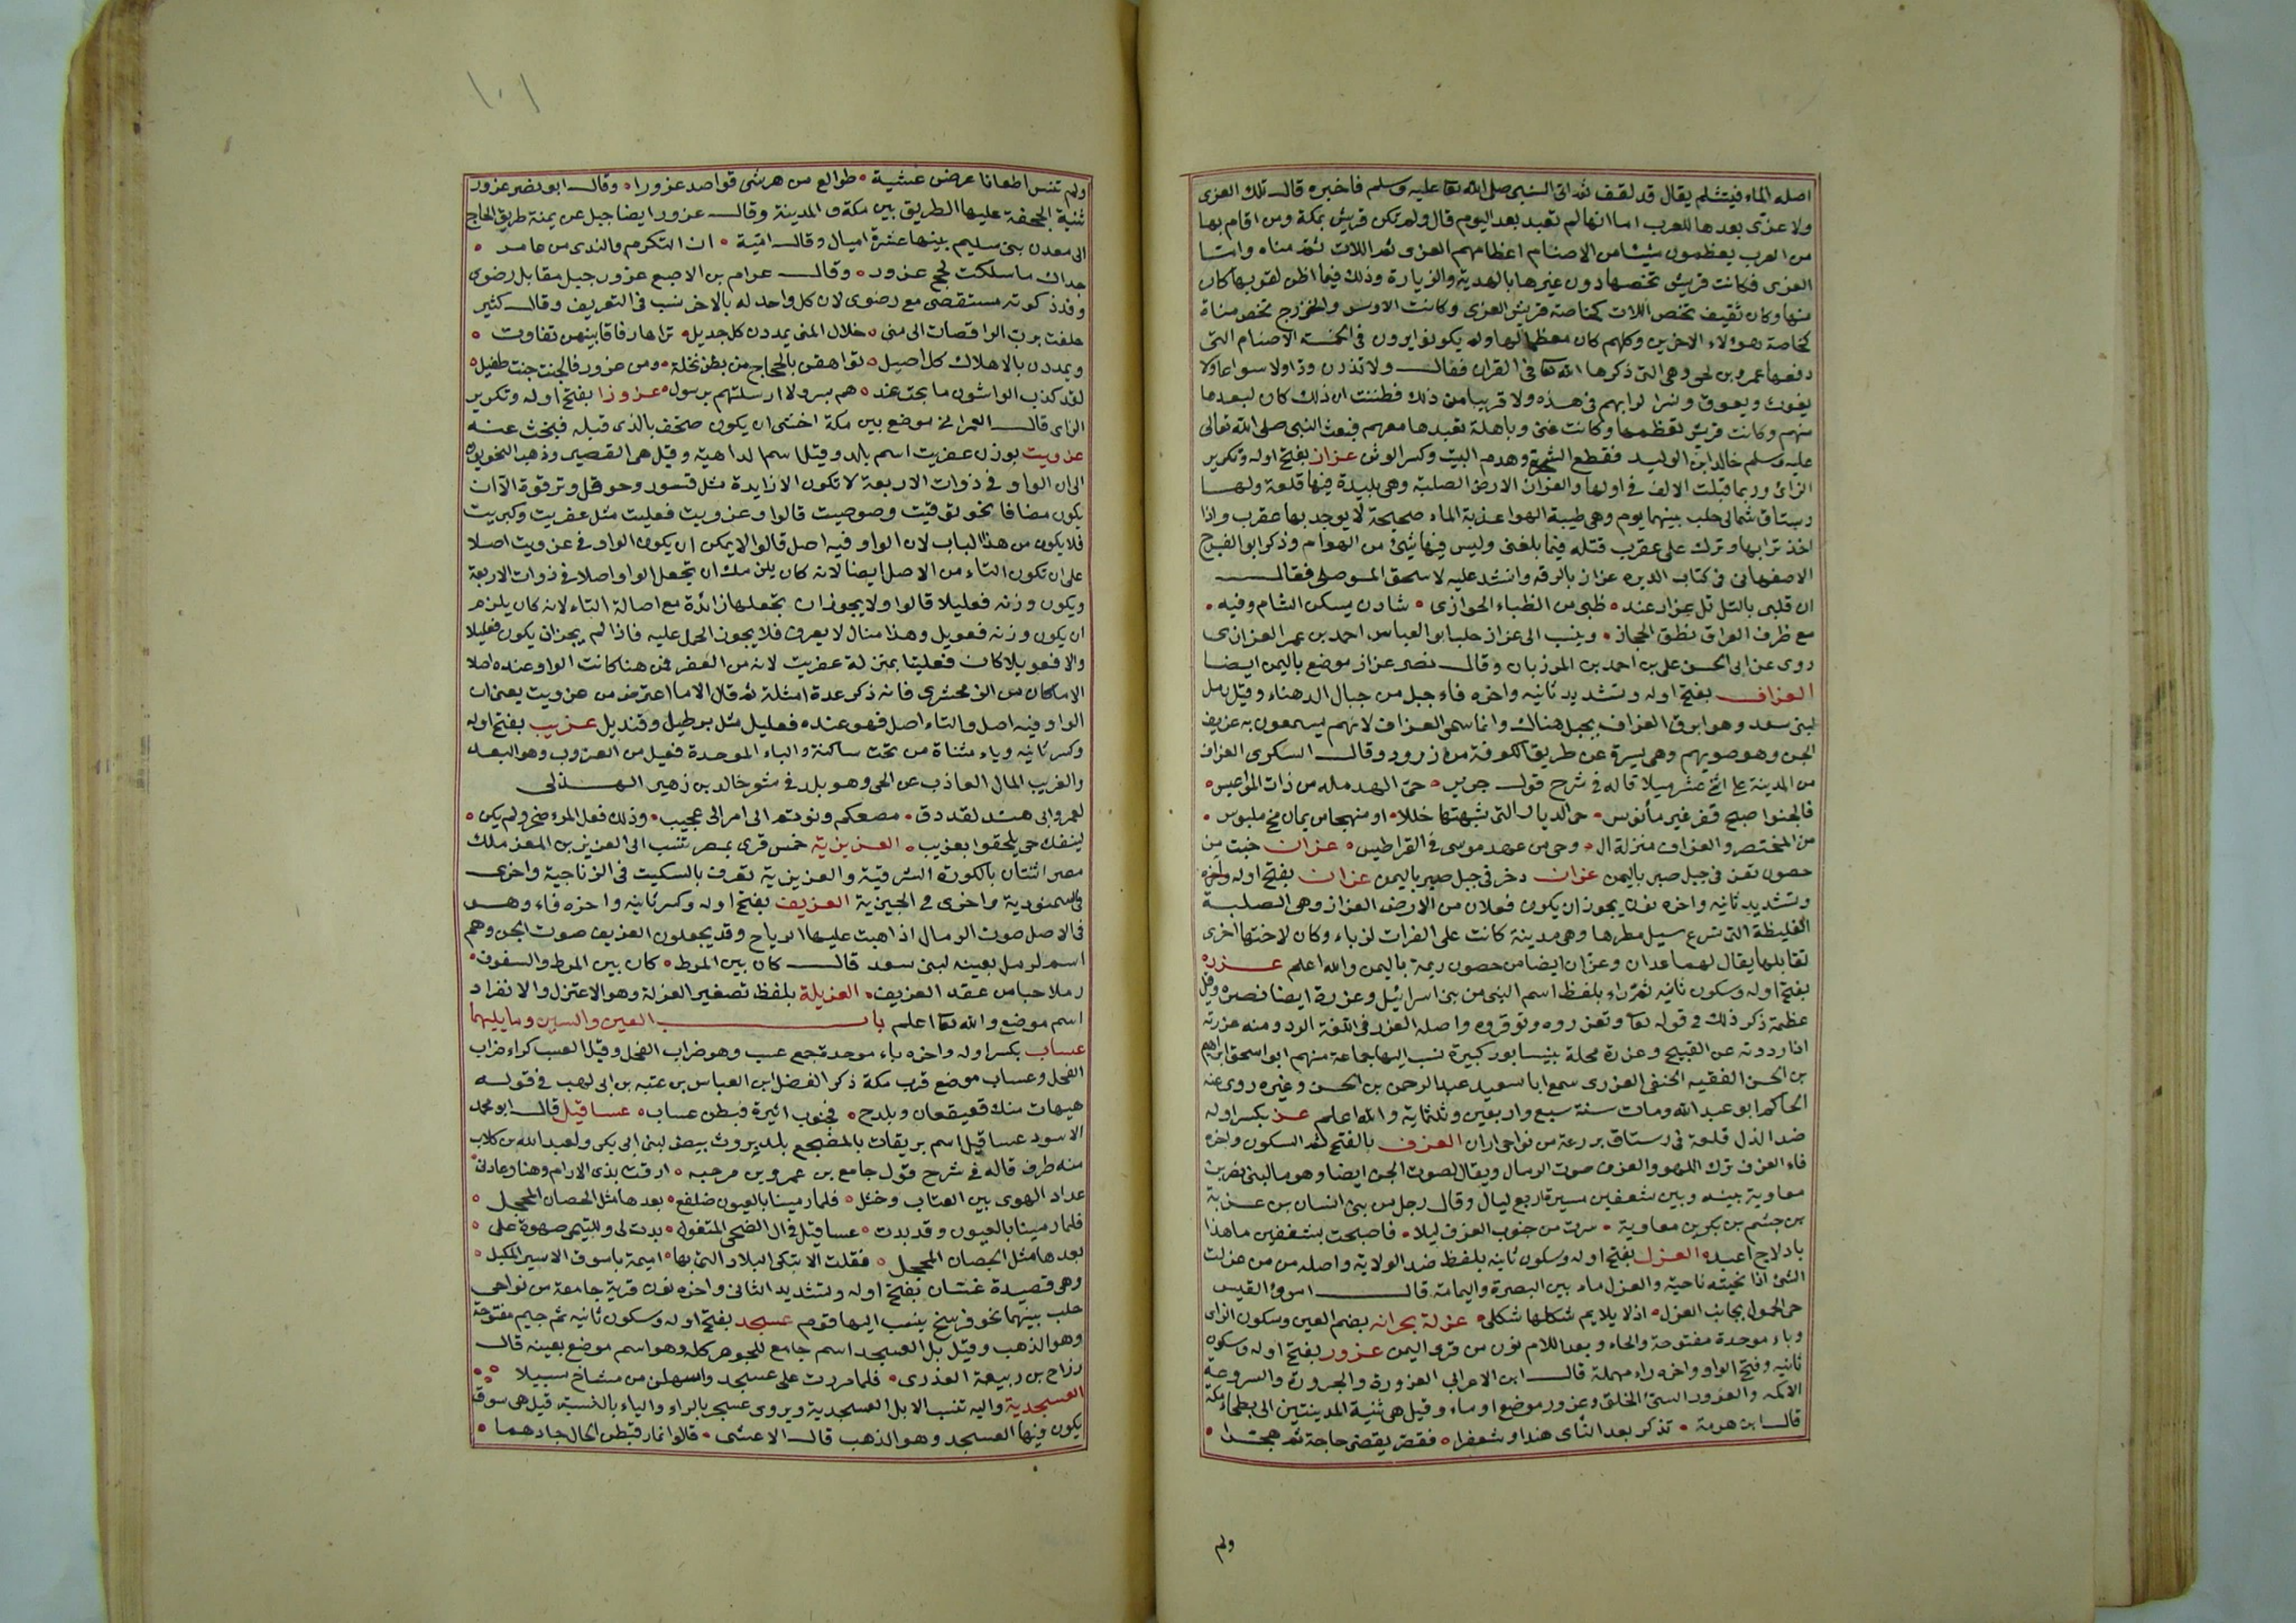 اصله الماء فيتثلم يقال قد لقف ثم اتى النبي صلى الله تعا عليه وسلم فاخبره قال تلك العزى
ولا عزى بعدها للعرب اما انها لم تعبد بعد اليوم قال ولم تكن قريش بمكة ومن اقام بها
من العرب يعظمون شيئا من الاصنام اعظامهم العزى ثم اللات ثم مناه واما
العزى فكانت قريش تخصها دون غيرها بالهدية والزيارة وذلك فيما اظن لقربها كان
منها وكان ثقيف تخص اللات كخاصة قريش العزى وكانت الاوس والخزرج تخص مناة
كخاصة هؤلاء الاخرين وكلهم كان معظما لها ولم يكونوا يرون في الخمسة الاصنام التي
دفعها عمرو بن لحي وهي التي ذكرها الله تعا في القران فقال ولا تذرن ودا ولا سواعا ولا
يغوث ويعوق ونسرا لرايهم في هذه ولا قريبا من ذلك فظننت ان ذلك كان لبعدها
منهم وكانت قريش تعظمها وكانت غني وباهلة تعبدها معهم فبعث النبي صلى الله تعالى
عليه وسلم خالد ابن الوليد فقطع الشجرة وهدم البيت وكسر الوثن عزاز بفتح اوله وتكرير
الزاي وربما قيلت الالف في اولها والعزاز الارض الصلبة وهي بليدة فيها قلعة ولها
رستاق شمالي حلب بينهما يوم وهي طيبة الهوا عذبة الماء صحيحة لا يوجد بها عقرب واذا
اخذ ترابها وترك على عقرب قتله فيما بلغني وليس فيها شئ من الهوام وذكر ابو الفرج
الاصفهاني في كتاب الديره عزاز بالرقه وانشد عليه لاسحق الموصلي فقال
ان قلبي بالتل تل عزاز عند ظبي من الظباء الجوازى شادن يسكن الشام وفيه
مع ظرف العراق نطق الحجاز وينسب الى عزاز حلب ابو العباس احمد بن عمر العزازي
روى عن ابي الحسن علي بن احمد بن المرزبان وقال نصر عزاز موضع باليمن ايضا
العزاف بفتح اوله وتشديد ثانيه واخره فاء جبل من جبال الدهناء وقيل رمل
لبني سعد وهو ابرق العزاف بجبل هناك وانما سمي العزاف لانهم يسمعون به عزيف
الجن وهو صوتهم وهي يسرة عن طريق الكوفة من زرود وقال السكري العزاف
من المدينة على اثني عشر ميلا قاله في شرح قول جرير حي الهدملة من ذات المواعيس
فالحنوا صبح قفر غير مأنوس حي الديار التي شبهتها خللا او منهجا من يمان مح ملبوس
من المختصر والعزاف منزلة ال وحي من عهد موسى في القراطيس عزان خبت من
حصون تعز في جبل صبر باليمن عزان دخر في جبل صبر باليمن عزان بفتح اوله واخره
وتشديد ثانيه واخره نون يجوز ان يكون فعلان من الارض العزاز وهي الصلبة
الغليظة التي تسرع سيل مطرها وهي مدينة كانت على الفرات لزباء وكان لاختها اخرى
تقابلها يقال لهما عدان وعزان ايضا من حصون ريمة باليمن والله اعلم عزره
بفتح اوله وسكون ثانيه ثم راء بلفظ اسم النبي من بني اسرائيل وعزرة ايضا نصره وقيل
عظمة ذكر ذلك في قوله تعا وتعزروه وتوقروه واصله العزر في اللغة الرد ومنه عزرته
اذا رددته عن القبيح وعزرة محلة بنيسابور كبيرة نسب اليها جماعة منهم ابو اسحق ابراهيم
بن الحسن الفقيه الحنفي العزري سمع ابا سعيد عبد الرحمن بن الحسن وغيره روى عنه
الحاكم ابو عبد الله ومات سنة سبع واربعين وثلثماية والله اعلم عز بكسر اوله
ضد الذل قلعة في رستاق بردعة من نواحي اران العزف بالفتح ثم السكون واخره
فاء العزف ترك اللهو والعزف صوت الرمال ويقال لصوت الجن ايضا وهو ما لبني نصر بن
معاوية بينه وبين شعفين مسيرة اربع ليال وقال رجل من بني انسان بن عزية
بن جشم بن بكر بن معاوية سرت من جنوب العزف ليلا فاصبحت بشعفين ما هذا
بادلاج اعبد العزل بفتح اوله وسكون ثانيه بلفظ ضد الولاية واصله من من عزلت
الشئ اذا نحيته ناحية والعزل ماء بين البصرة واليمامة قال امرؤ القيس
حي الحمول بجانب العزل اذ لا يلايم شكلها شكلي عزلة بحرانه بضم العين وسكون الزاي
وباء موحدة مفتوحة والحاء وبعد اللام نون من قرى اليمن عزور بفتح اوله وسكون
ثانيه وفتح الواو واخره راء مهملة قال ابن الاعرابي العزورة والحزورة والسروعة
الاكمه والعزور السئ الخلق وعزور موضع او ماء وقيل هي ثنية المدينتين الى بطحاء مكة
قال ابن هرمة تذكر بعد النأى هندا وشعفرا فقصر يقضي حاجة ثم هجرا
ولم
١٠١
ولم تنس اظعانا عرضن عشية طوالع من هرشى قواصد عزورا وقال ابو نصر عزور
ثنية الجحفة عليها الطريق بين مكة والمدينة وقال عزور ايضا جبل عن يمنة طريق الحاج
الى معدن بني سليم بينها عشرة اميال وقال امية ان التكرم والندى من عامر
جداك ما سلكت لحج عزور وقال عرام بن الاصبع عزور جبل مقابل رضوى
وقد ذكرته مستقصى مع رضوى لان كل واحد له بالاخر نسب في التعريف وقال كثير
حلفت برب الراقصات الى منى خلال المنى يمددن كل جديل تراها رفاقا بينهن تفاوت
ويمددن بالاهلال كل اصيل تواهقن بالحجاج من بطن نخلة ومن عزور فالخبت خبت طفيل
لقد كذب الواشون ما بحت عنده هم بسر ولا ارسلتهم برسول عزوزا بفتح اوله وتكرير
الزاى قال العمراني موضع بين مكة اخشى ان يكون صحف بالذي قبله فبحث عنه
عزويت بوزن عفريت اسم بلد وقيل اسم لداهية وقيل هي القصير وذهب النحويون
الى ان الواو في ذوات الاربعة لا تكون الا زايدة مثل قسور وحوقل وترقوة الا ان
يكون مضافا نحو توقيت وصوصيت قالوا وعزويت فعليت مثل عفريت وكبريت
فلا يكون من هذا الباب لان الواو فيه اصل قالوا لا يمكن ان يكون الواو في عزويت اصلا
على ان تكون التاء من الاصل ايضا لانه كان يلزمك ان تجعل الواو اصلا في ذوات الاربعة
ويكون وزنه فعليلا قالوا ولا يجوز ان تجعلها زائدة مع اصالة التاء لانه كان يلزم
ان يكون وزنه فعويل وهذا مثال لا يعرف فلا يجوز الحمل عليه فاذا لم يجز ان يكون فعليلا
والا فعويلا كان فعليتا بمنزلة عفريت لانه من العفر فمن هنا كانت الواو عنده اصلا
الا ماكان من الزمخشري فانه ذكر عدة امثلة ثم قال الا ما اعترض من عزويت يعني ان
الواو فيه اصل والتاء اصل فهو عنده فعليل مثل برطيل وقنديل عزيب بفتح اوله
وكسر ثانيه وياء مثناة من تحت ساكنة والباء الموحدة فعيل من العزوب وهو البعد
والعزيب المال العاذب عن الحي وهو بلد في شعر خالد بن زهير الهذلي
لعمر ابي هند لقد دق مصعكم ونوتم الى امر الي عجيب وذلك فعل المرء صخر ولم يكن
لينفك حي يلحقوا بعزيب العزيزية خمس قرى بمصر تنسب الى العزيز بن المعز ملك
مصر اثنتان بالكورة الشرقية والعزيزية تعرف بالسكيت في الزناجية واخرى
في السمنودية واخرى في الجيزية العزيف بفتح اوله وكسر ثانيه واخره فاء وهو
في الاصل صوت الرمال اذا هبت عليها الرياح وقد يجعلون العزيف صوت الجن وهم
اسم لرمل بعينه لبني سعد قال كان بين المرط كان بين المرط والسفوف
رملا حبا من عقد العزيف العزيلة بلفظ تصغير العزلة وهو الاعتزل والانفراد
اسم موضع والله تعا اعلم باب العين والسين وما يليهما
عساب بكسر اوله واخره باء موحدة جمع عسب وهو ضراب الفحل وقيل العسب كراء ضراب
الفحل وعساب موضع قرب مكة ذكر الفضل ابن العباس بن عتبه بن ابي لهب في قوله
هيهات منك قعيقعان وبلدح فجنوب اثيرة فبطن عساب عساقيل قال ابو محمد
الاسود عساقيل اسم بريقات بالمضجع بلد بروث بيض لبني ابي بكر ولعبد الله بن كلاب
منه طرف قاله في شرح قول جامع بن عمرو بن مرحبه ارقت بذى الارام وهنا وعادني
عداد الهوى بين العتاب وخثل فلما رمينا بالعيون ضلفع بعدها مثل الحصان المحجل
فلما رمينا بالعيون وقد بدت عساقيل في ال الضحى المتغول بدت لي وللتيمي صهوة على
بعدها مثل الحصان المحجل فقلت الا تبكي البلاد التي بها اميمة باسوق الاسير المكبل
وهي قصيدة عسان بفتح اوله وتشديد الثاني واخره نون قرية جامعة من نواحي
حلب بينهما نحو فرسخ ينسب اليها قوم عسجد بفتح اوله وسكون ثانيه ثم جيم مفتوحة
وهو الذهب وقيل بل العسجد اسم جامع للجوهر كله وهو اسم موضع بعينه قال
رزاح بن ربيعة العذرى فلما مررت على عسجد واسهلن من مشاخ سبيلا
العسجدية واليه تنسب الابل العسجدية ويروى عسجر بالراء والياء بالنسبة قيل هي سوق
يكون فيها العسجد وهو الذهب قال الاعشى قالوا نمار فبطن الخال جادهما